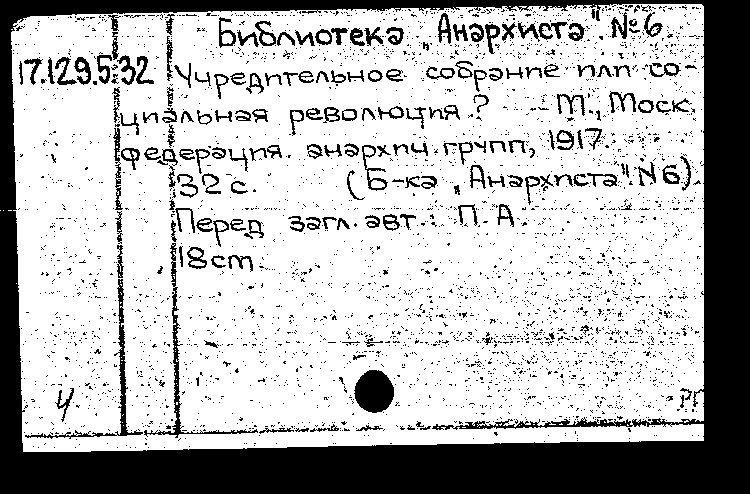 Библиотека „Анархиста“. № 6.
17.129.5.32 Учредительное собрание или со-
циальная революция? — М., Моск.
федерация. анархич. групп, 1917.
32 с. (Б-ка „Анархиста“. № 6).
Перед загл. авт.: П. А.
18 cm.
Ч
РГ